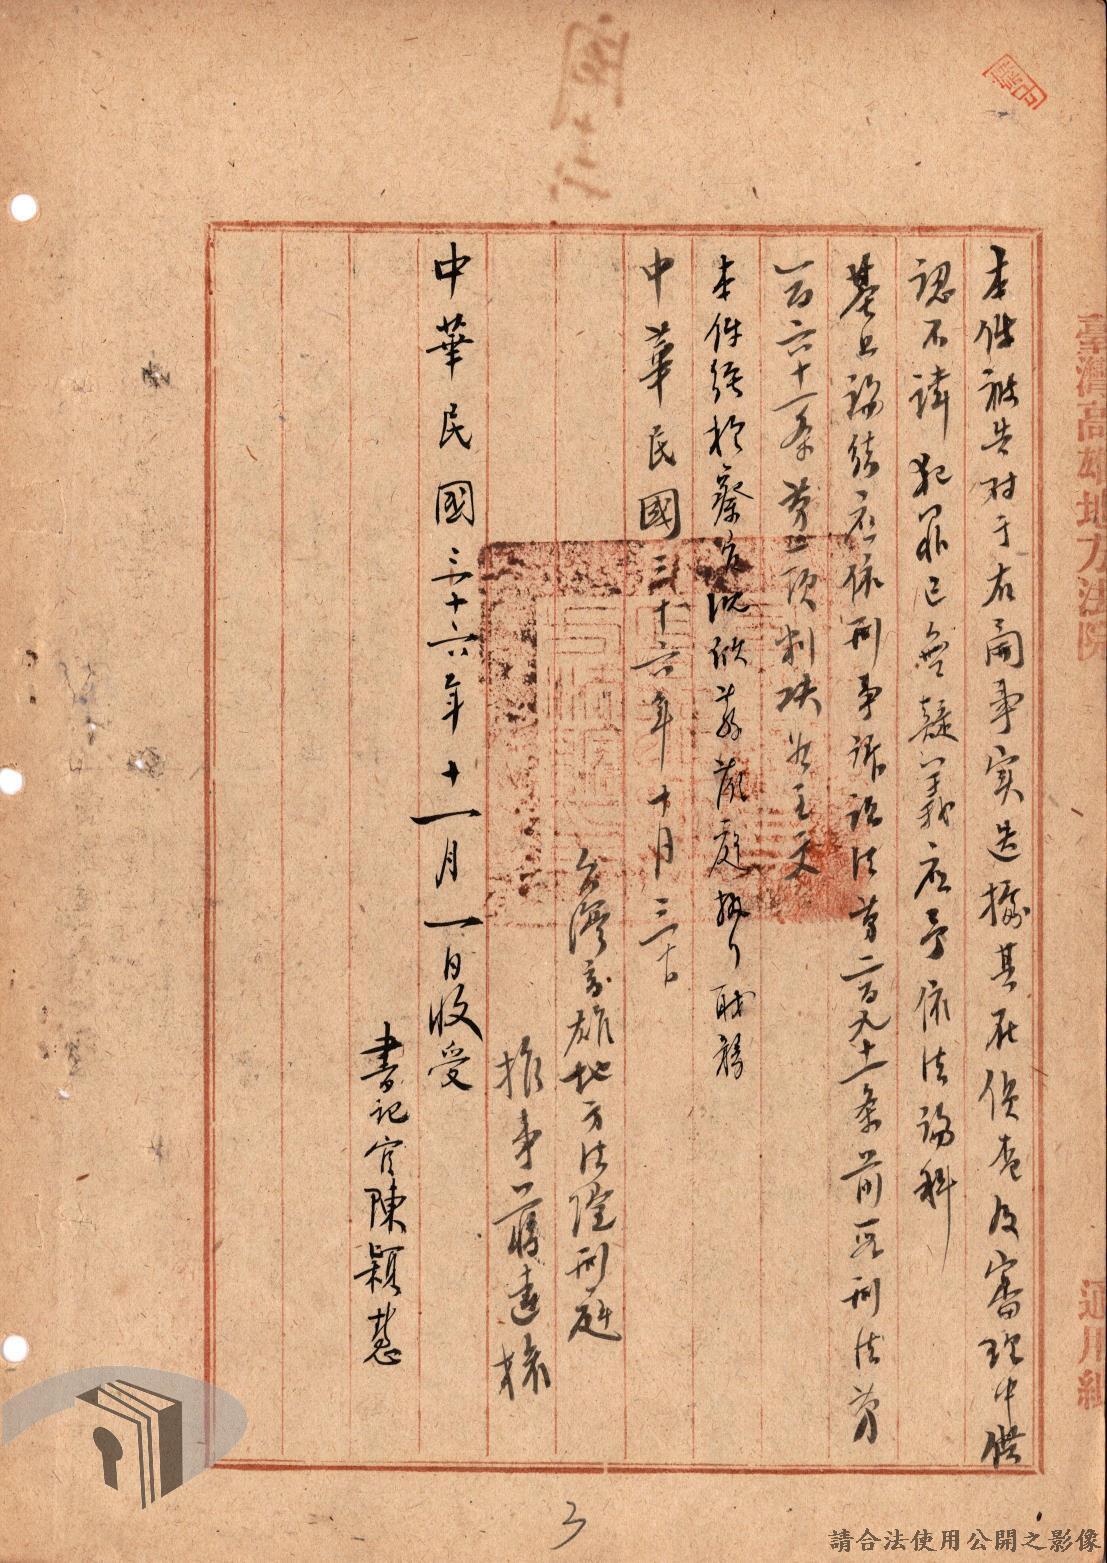 本件被告对于右開事实迭據其在偵查及審理中供
認不諱犯罪已無疑義应予依法論科
基上論結应依刑事訴訟法第二百九十一条前段刑法第
一百六十一条第二項判决如主文
本件經檢察官沈欣蒞庭執行職務
中華民國三十六年十月三十日
台灣高雄地方法院刑庭
推事蔣遠
中華民國三十六年十一月一日收受
書記官陳穎慧
臺灣高雄地方法院
通用紙
3
請合法使用公開之影像